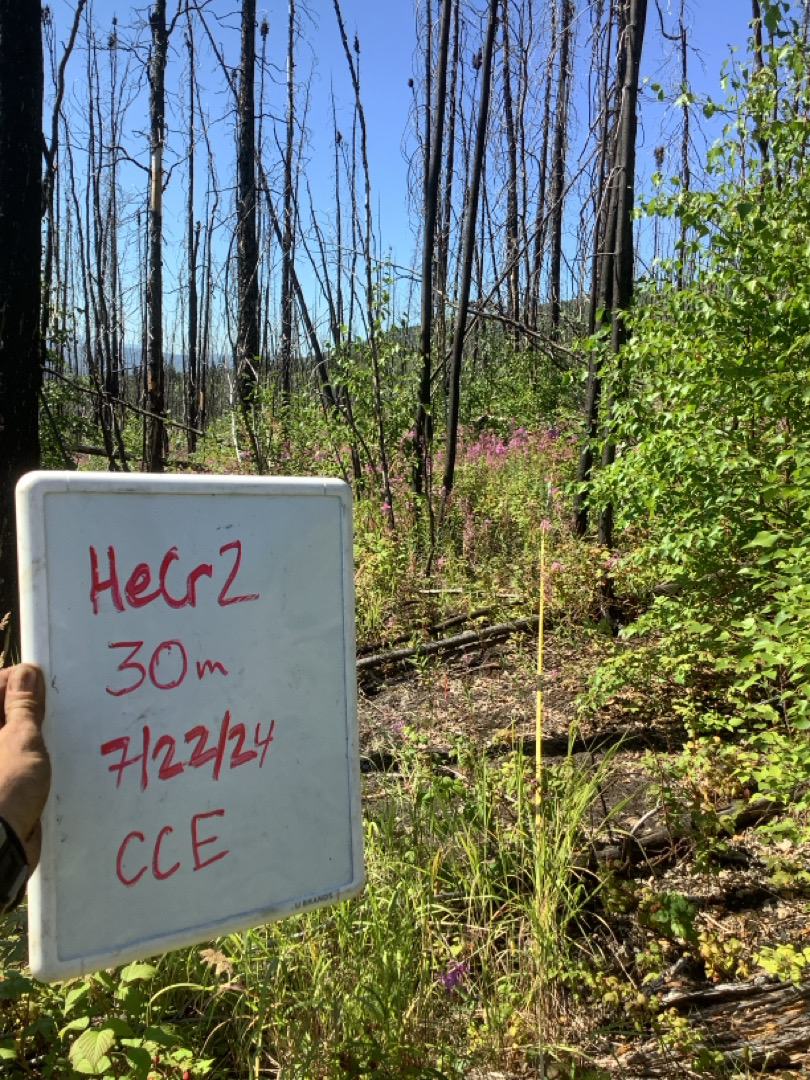 HeCr2
30m
7/22/24
CCE
U BRANDS